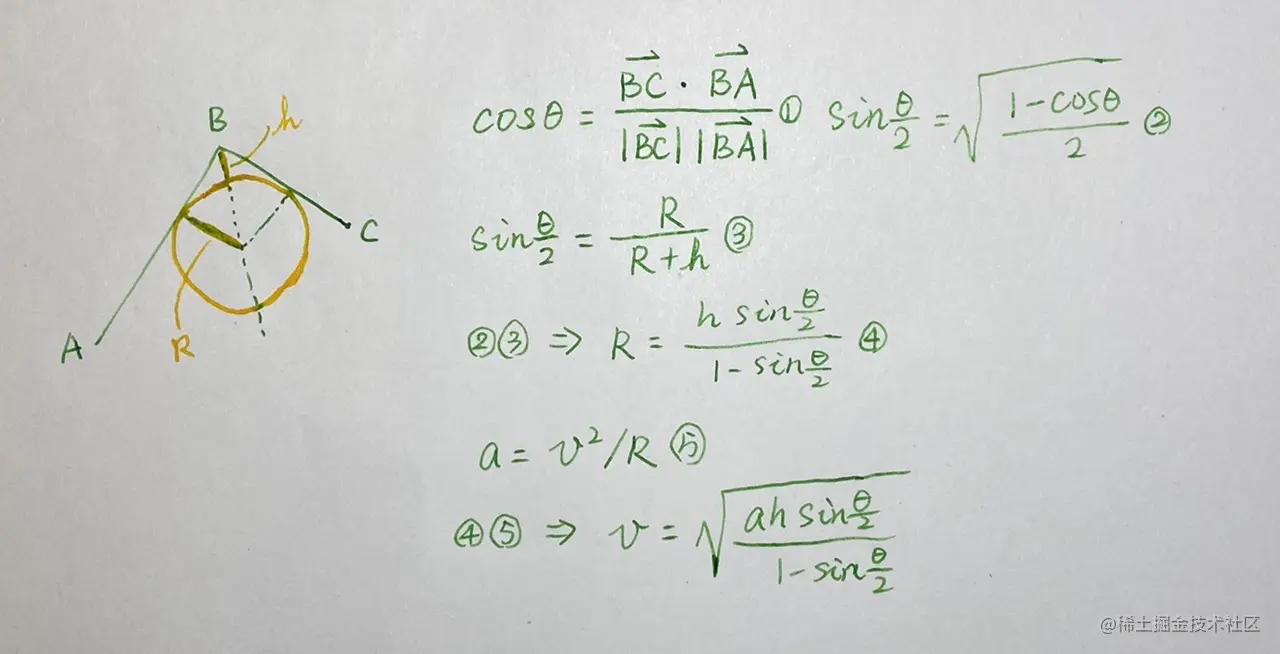 B
h
A
R
C
cosθ = (BC⃗ · BA⃗) / (|BC⃗| |BA⃗|) ① sin θ/2 = √((1-cosθ)/2) ②
sin θ/2 = R / (R+h) ③
②③ ⇒ R = (h sin θ/2) / (1 - sin θ/2) ④
a = v²/R ⑤
④⑤ ⇒ v = √((ah sin θ/2) / (1 - sin θ/2))
@稀土掘金技术社区